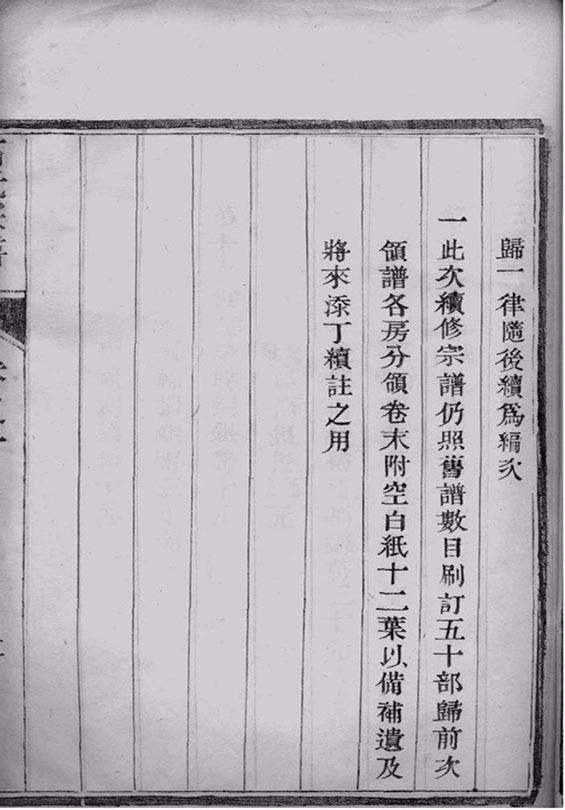 歸一律隨後續爲編次
一此次續修宗譜仍照舊譜數目刷訂五十部歸前次
領譜各房分領卷末附空白紙十二葉以備補遺及
將來添丁續註之用